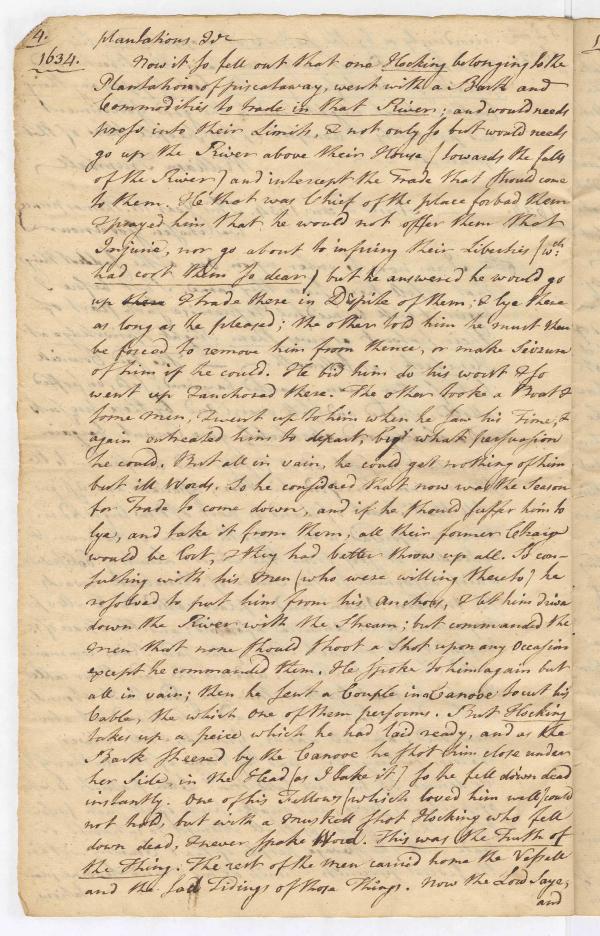 4.
1634.
plantations &c
Now it so fell out that one Hocking belonging to the
Plantation of piscataway, went with a Bark and
Commodities to trade in that River; and would needs
press into their Limits, & not only so but would needs
go up the River above their House (towards the falls
of the River) and intercept the Trade that should come
to them. He that was Chief of the place forbad them
& prayed him that he would not offer them that
Injurie, nor go about to infring their Liberties (wch.
had cost them so dear) but he answered he would go
up there & trade there in Dispite of them; & lye there
as long as he pleased; the other told him he must then
be forced to remove him from thence, or make Seizure
of him if he could. He bid him do his worst & so
went up & anchored there. The other tooke a Boat &
some men, & went up to him when he saw his Time, &
again entreated him to depart, by what persuasion
he could. But all in vain, he could get nothing of him
but ill Words. So he considered that now was the Season
for Trade to come down, and if he should suffer him to
lye, and take it from them, all their former Charge
would be lost, & they had better throw up all. So con-
sulting with his Men (who were willing thereto) he
resolved to put him from his anchor, & let him drive
down the River with the Stream; but commanded the
men that none should shoot a Shot upon any Occasion
except he commanded them. He spoke to him again but
all in vain; then he sent a Couple in a Canooe to cut his
Cable, the which one of them performs. But Hocking
takes up a peice which he had laid ready, and as the
Bark sheered by the Canooe he shot him close under
her Side, in the Head (as I take it,) so he fell down dead
instantly. One of his Fellows (which loved him well) could
not hold, but with a muskett shot Hocking who fell
down dead, & never spake Word. This was the Truth of
the Thing. The rest of the men carried home the Vessell
and the sad Tidings of those Things. Now the Lord Saye,
and